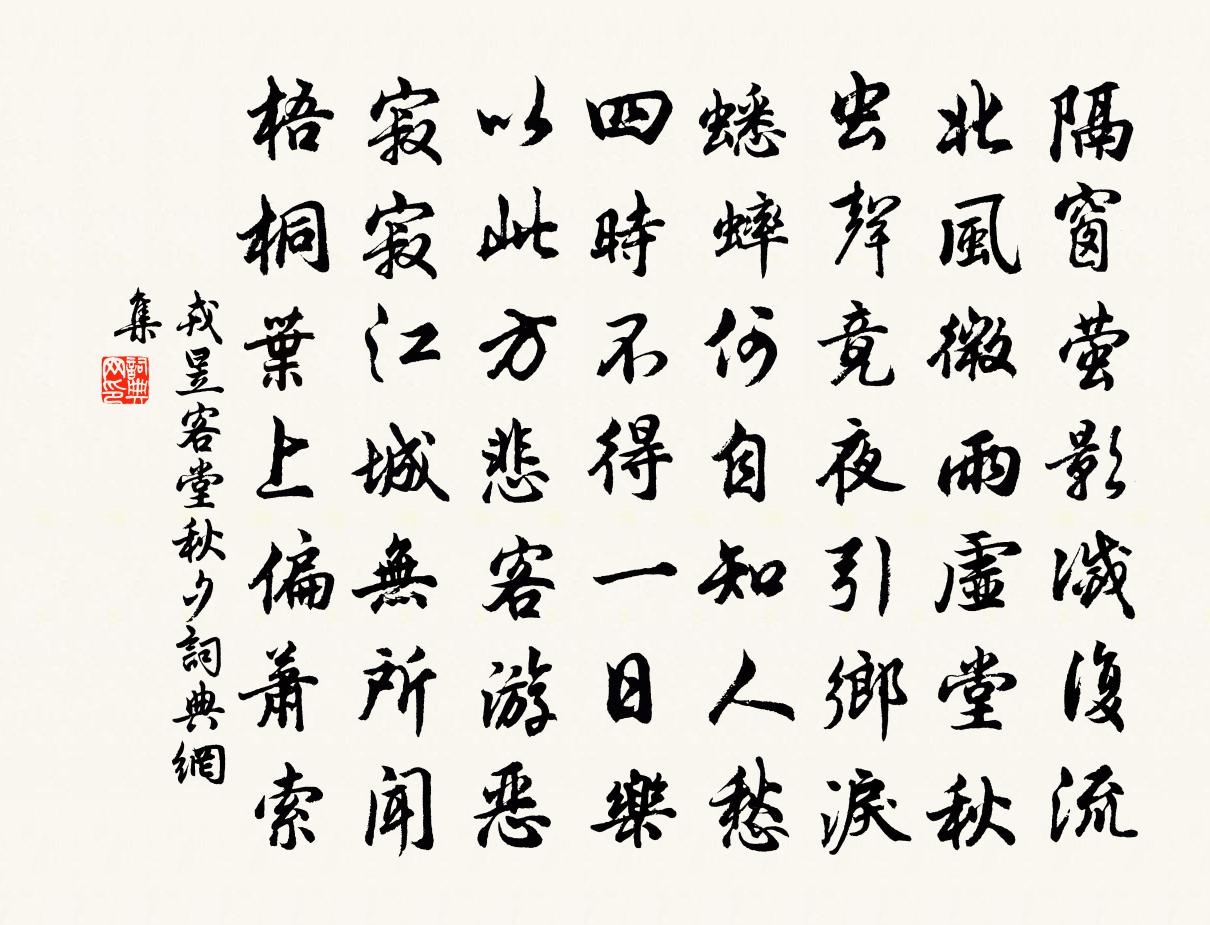 隔窗萤影滅復流
北風微雨虛堂秋
虫聲竟夜引鄉淚
蟋蟀何自知人愁
四時不得一日樂
以此方悲客游惡
寂寂江城無所聞
梧桐葉上偏蕭索
戎昱客堂秋夕詞典網
集
詞典
网印